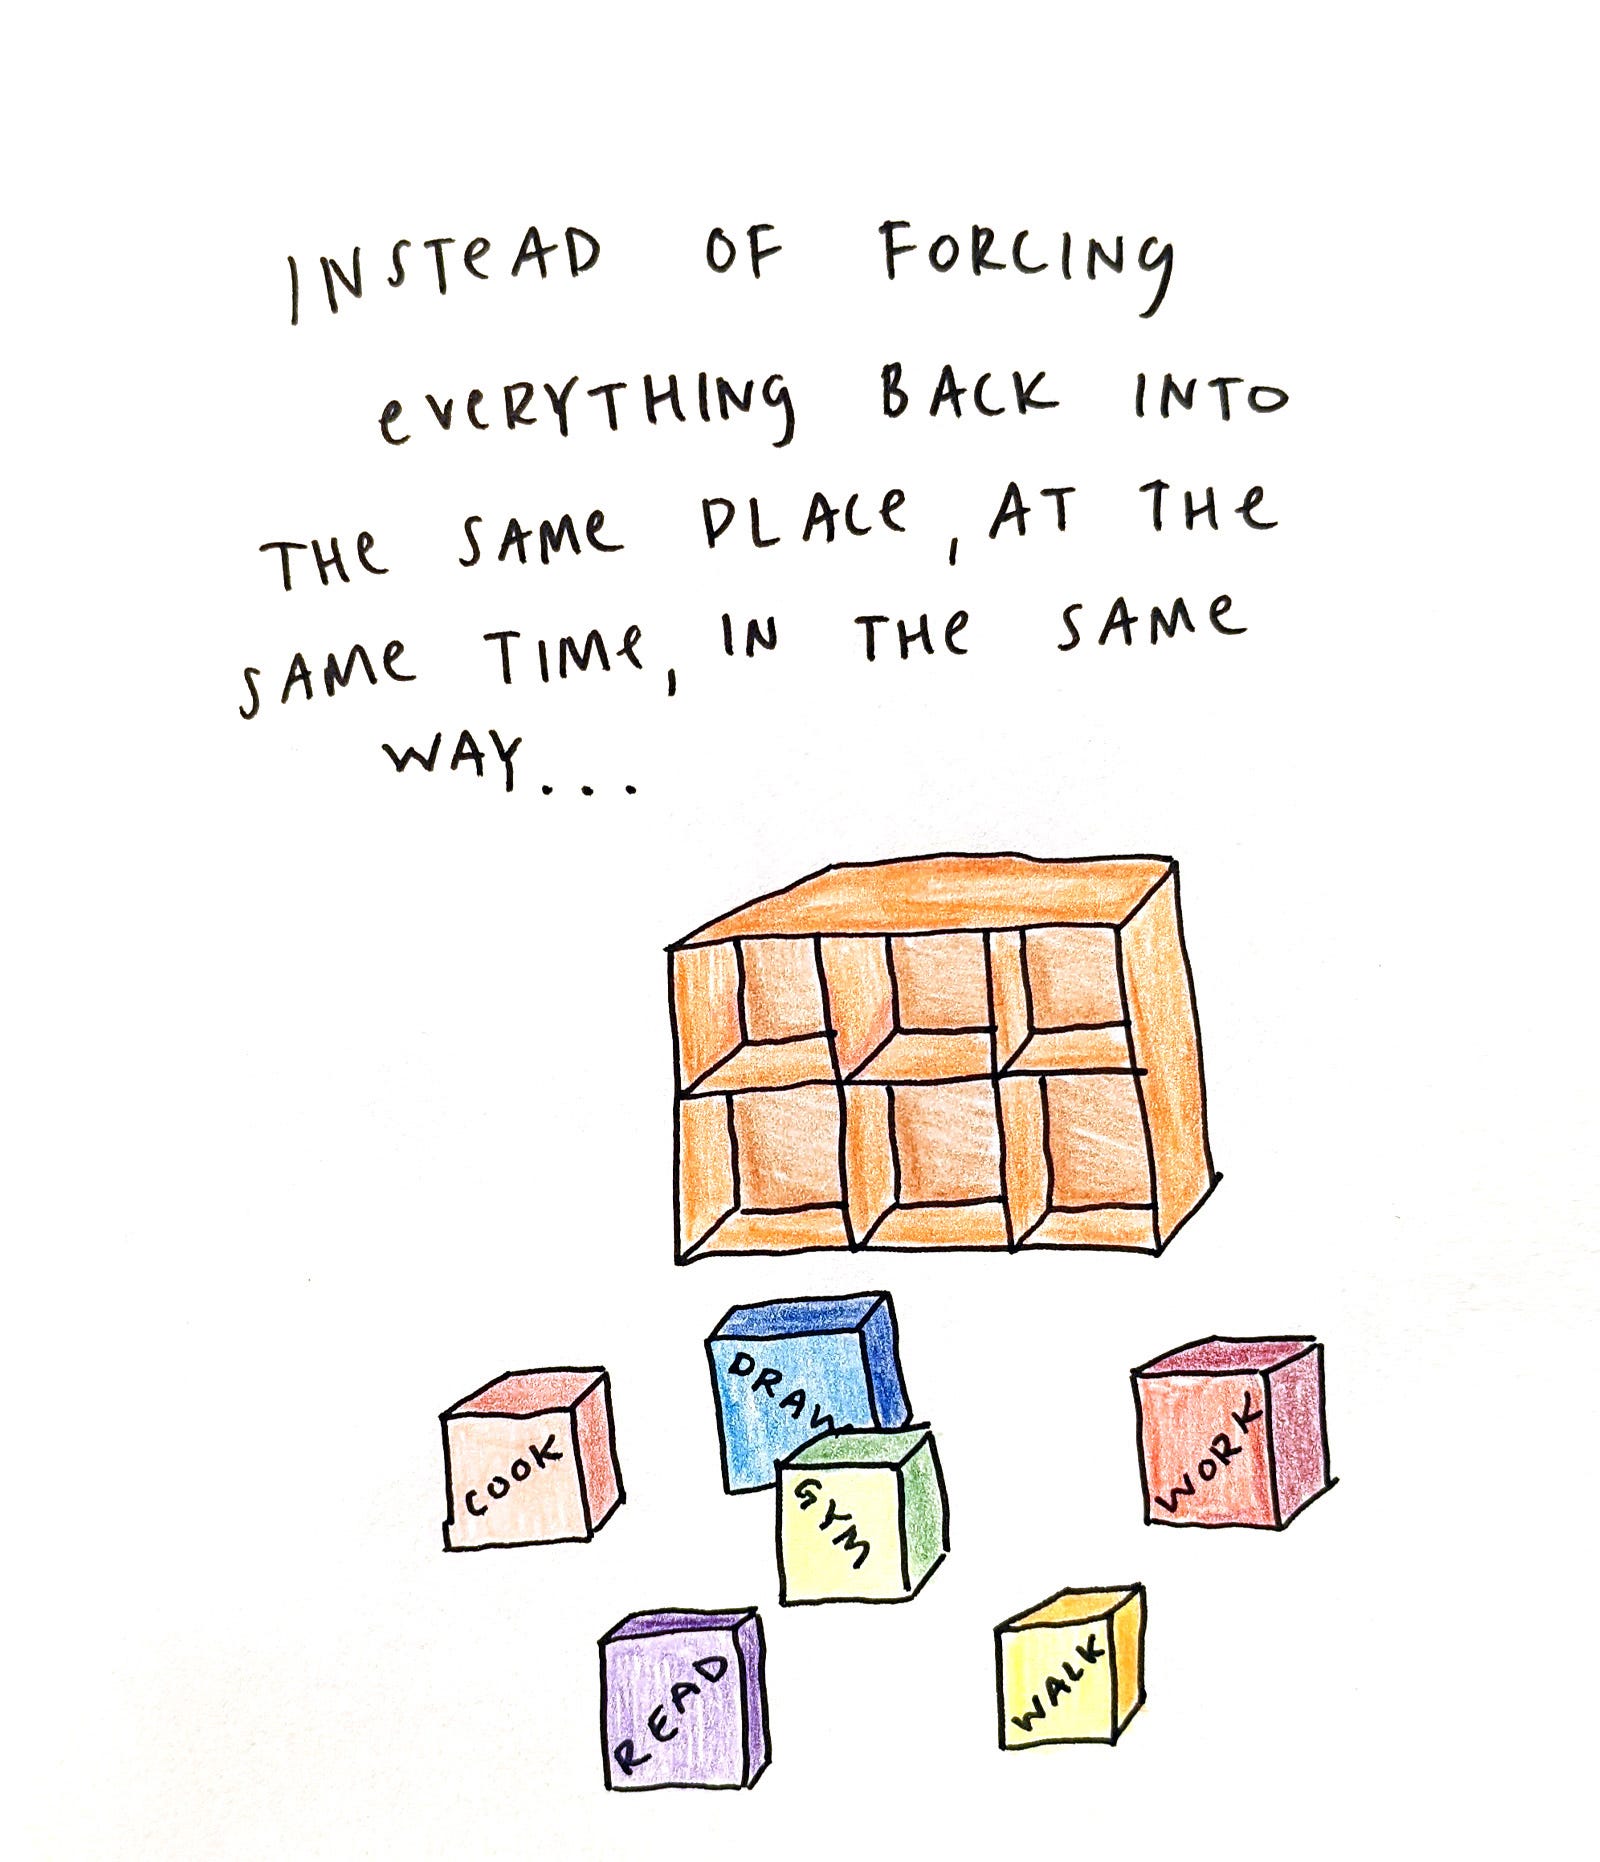 INSTEAD OF FORCING
EVERYTHING BACK INTO
THE SAME PLACE, AT THE
SAME TIME, IN THE SAME
WAY...
DRAW
COOK
WORK
GYM
READ
WALK